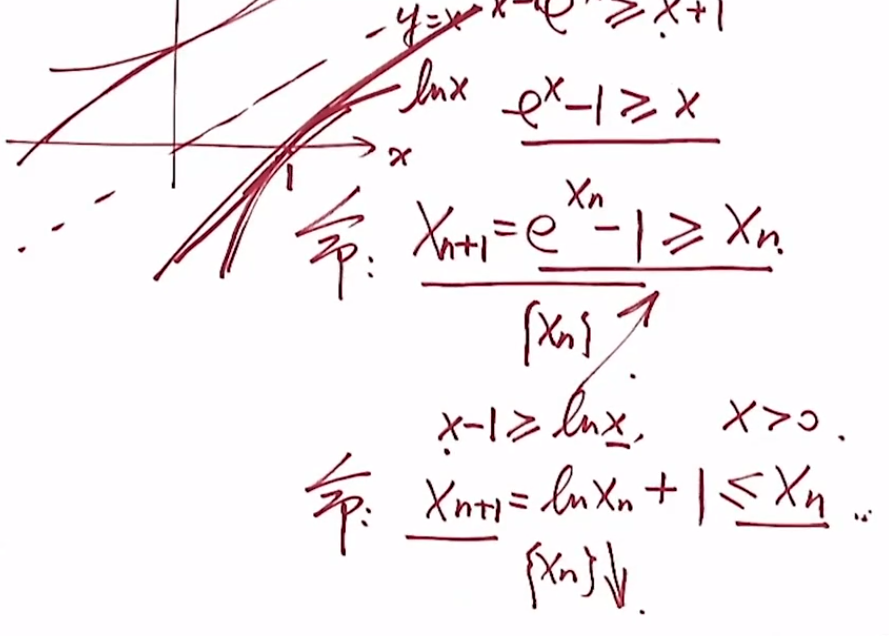 y=x
≥ x+1
lnx
eˣ-1 ≥ x
x
1
令: Xₙ₊₁=e^{Xₙ}-1 ≥ Xₙ.
{Xₙ}
x-1 ≥ lnx, X>0.
令: Xₙ₊₁=lnXₙ+1 ≤ Xₙ
{Xₙ}↓.